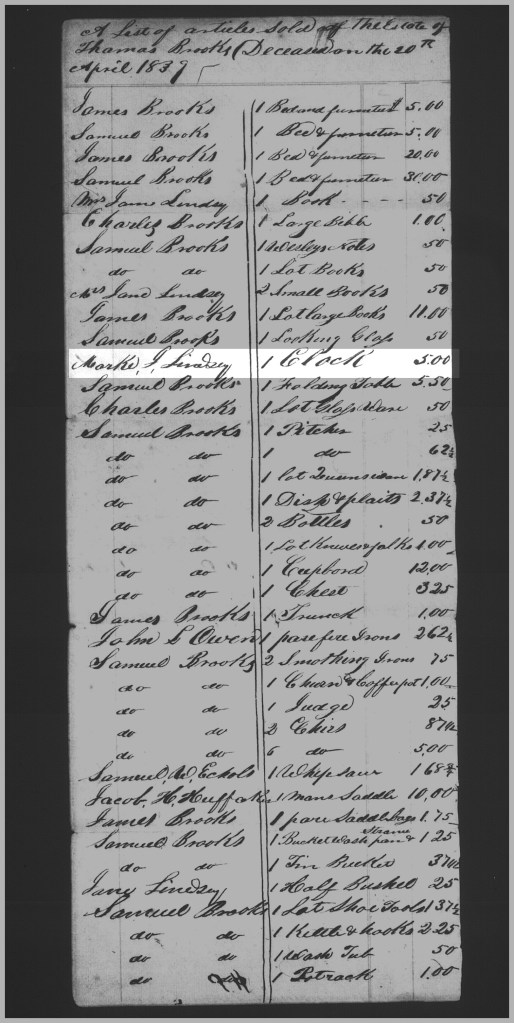 A List of articles Sold off the Estate of
Thomas Brooks (Deceased on the 20th
April 1837
James Brooks 1 Bed and furneture 5.00
Samuel Brooks 1 Bed & furneture 5.00
James Brooks 1 Bed & furneture 20.00
Samuel Brooks 1 Bed & furneture 30.00
Mrs Jane Lindsey 1 Book - - - - 50
Charles Brooks 1 Large Bible 1.00
Samuel Brooks 1 Wesleys Notes 50
do do 1 Lot Books 50
Mrs Jane Lindsey 2 Small Books 50
James Brooks 1 Lot large Books 11.00
Samuel Brooks 1 Looking Glass 50
Marke, J, Lindsey 1 Clock 5.00
Samuel Brooks 1 Folding Table 5.50
Charles Brooks 1 Lot Glass Ware 50
Samuel Brooks 1 Pitcher 25
do do 1 do 62½
do do 1 lot 1,87½
do do 1 Dish & plaits 2.37½
do do 2 Bottles 50
do do 1 Lot Knives & forks 1.00
do do 1 Cupbord 12.00
do do 1 Chest 325
James Brooks 1 Trunck 1,00
John S Owen 1 pare fire Irons 262½
Samuel Brooks 2 Smothing Irons 75
do do 1 Churn & Coffeepot 1,00
do do 1 Judge 25
do do 2 Chirs 87½
do do 6 do 5.00
Samuel, W, Echols 1 Whip saw 1 68¾
Jacob, H, Huffaker 1 Mans Saddle 10,00
James Brooks 1 pare Saddlebags 1.75
Samuel Brooks 1 Bucket Wash pan & 1 25
do do 1 Tin Bucket 37½
Jane Lindsey 1 Half Bushel 25
Samuel Brooks 1 Lot Shoe Tools 1 37½
do do 1 Kettle & hooks 2.25
do do 1 Wash Tub 50
do do 1 Potrack 1.00